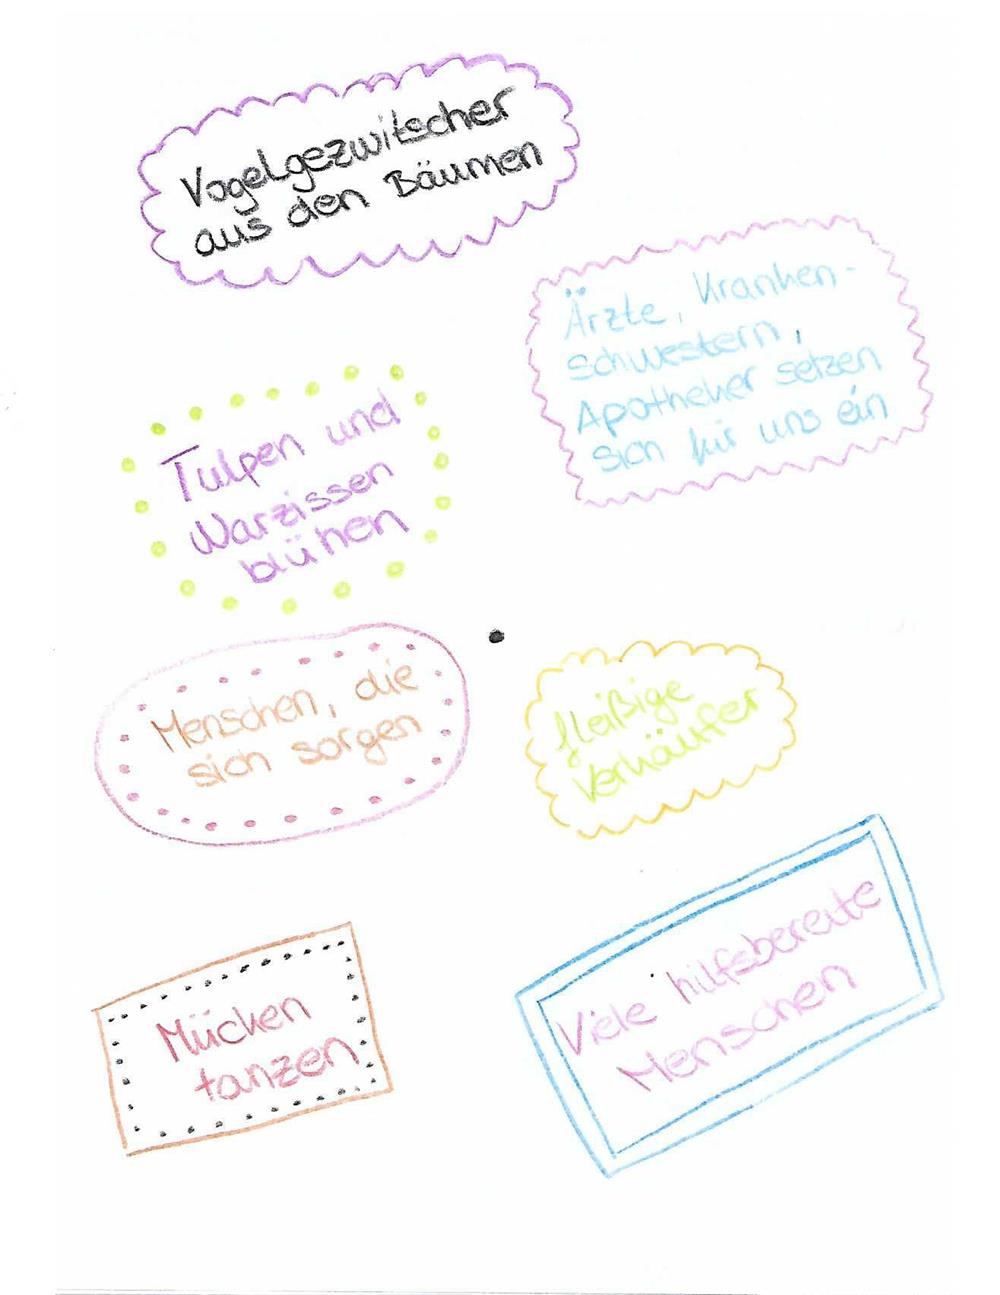 Vogelgezwitscher
aus den Bäumen
Ärzte, Kranken-
schwestern,
Apotheker setzen
sich für uns ein
Tulpen und
Narzissen
blühen
Menschen, die
sich sorgen
fleißige
Verkäufer
Mücken
tanzen
Viele hilfsbereite
Menschen